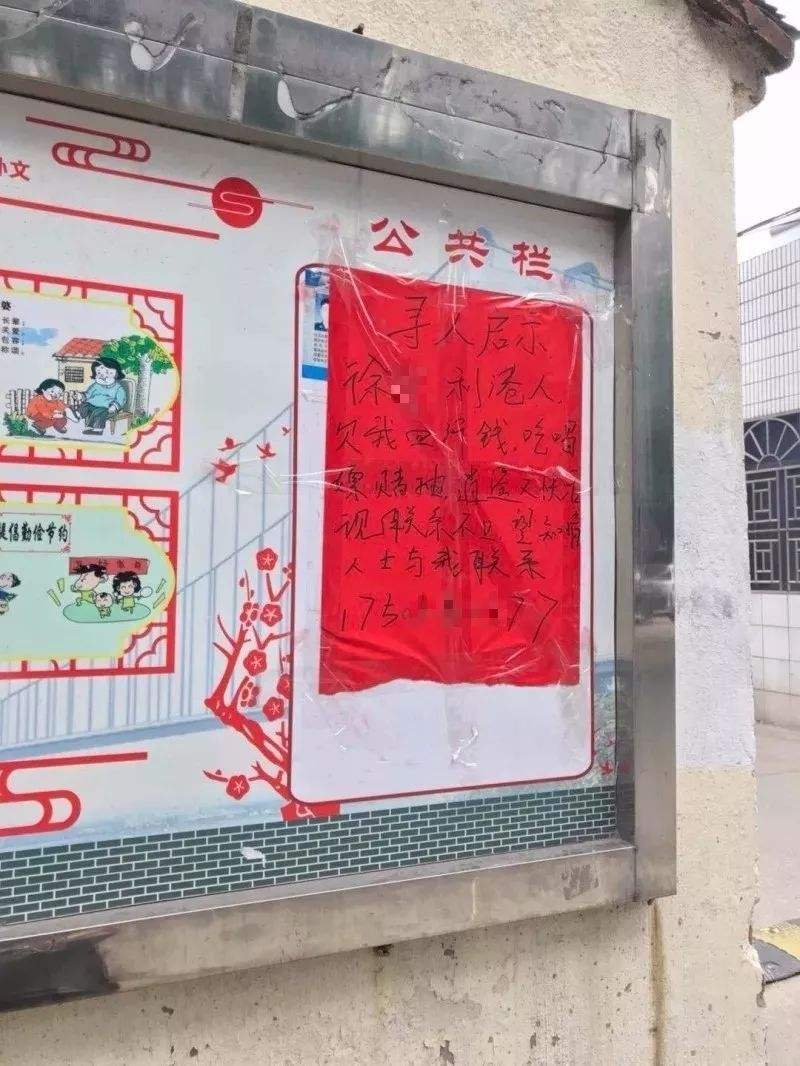 文
公共栏
婆
长辈;
关爱
包容
称颂。
倡勤俭节约
寻人启示
徐 利港人
欠我 钱.吃喝
嫖赌抽逍遥又快活
现联系不上望知情
人士与我联系
175 77